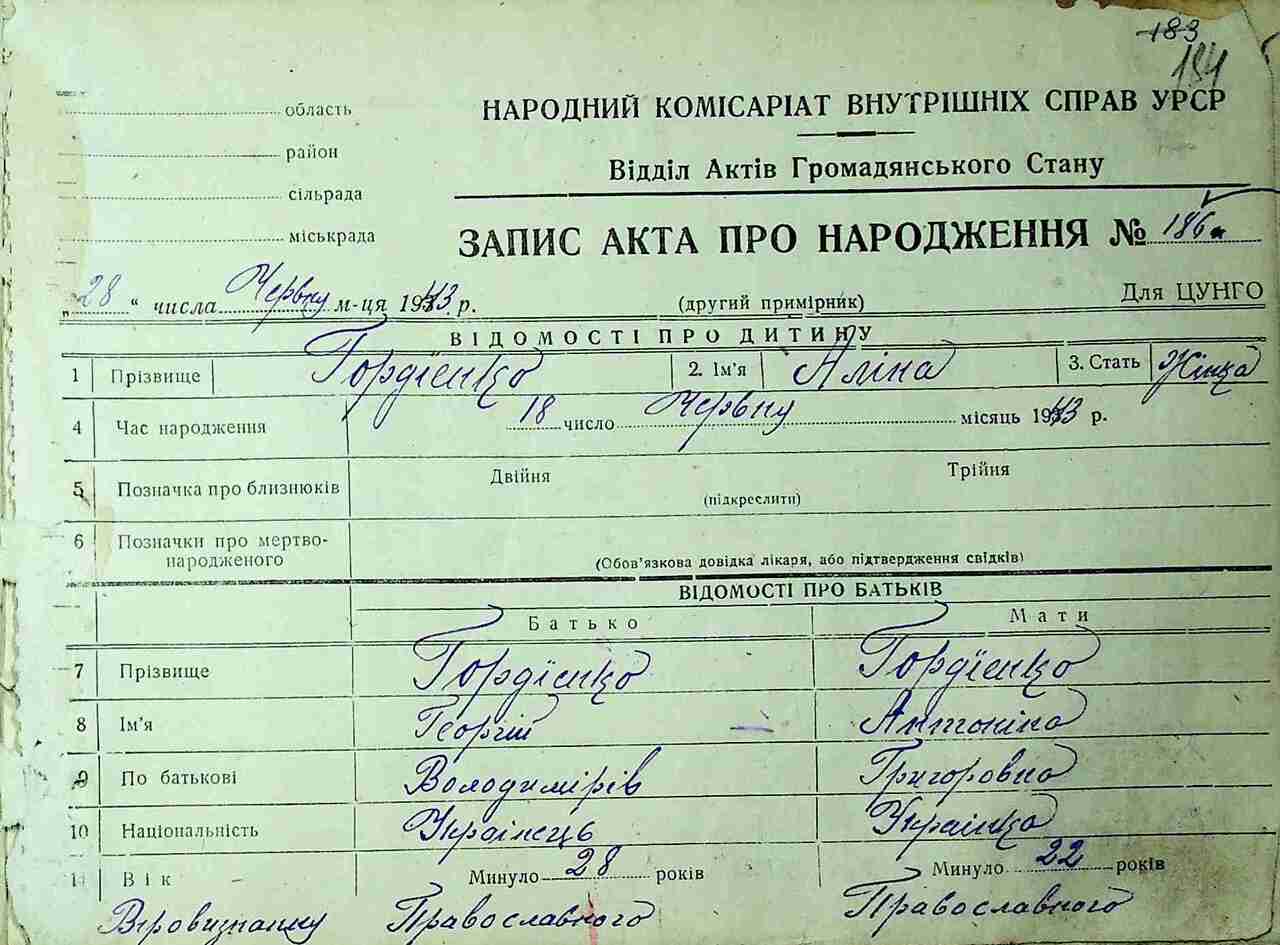 183
184
область
район
сільрада
міськрада
НАРОДНИЙ КОМІСАРІАТ ВНУТРІШНІХ СПРАВ УРСР
Відділ Актів Громадянського Стану
ЗАПИС АКТА ПРО НАРОДЖЕННЯ № 186а
„28“ числа Червну м-ця 1943 р.
(другий примірник)
Для ЦУНГО
ВІДОМОСТІ ПРО ДИТИНУ
1 Прізвище Гордїенко 2. Ім'я Аліна 3. Стать Жінка
4 Час народження 18 число Червну місяць 1943 р.
5 Позначка про близнюків Двійня Трійня
(підкреслити)
6 Позначки про мертво-
народженого (Обов'язкова довідка лікаря, або підтвердження свідків)
ВІДОМОСТІ ПРО БАТЬКІВ
Батько Мати
7 Прізвище Гордїенко Гордїенко
8 Ім'я Георгій Антоніна
9 По батькові Володимірів Григоровна
10 Національність Українець Українка
11 Вік Минуло 28 років Минуло 22 років
Віровизнанну Православного Православного